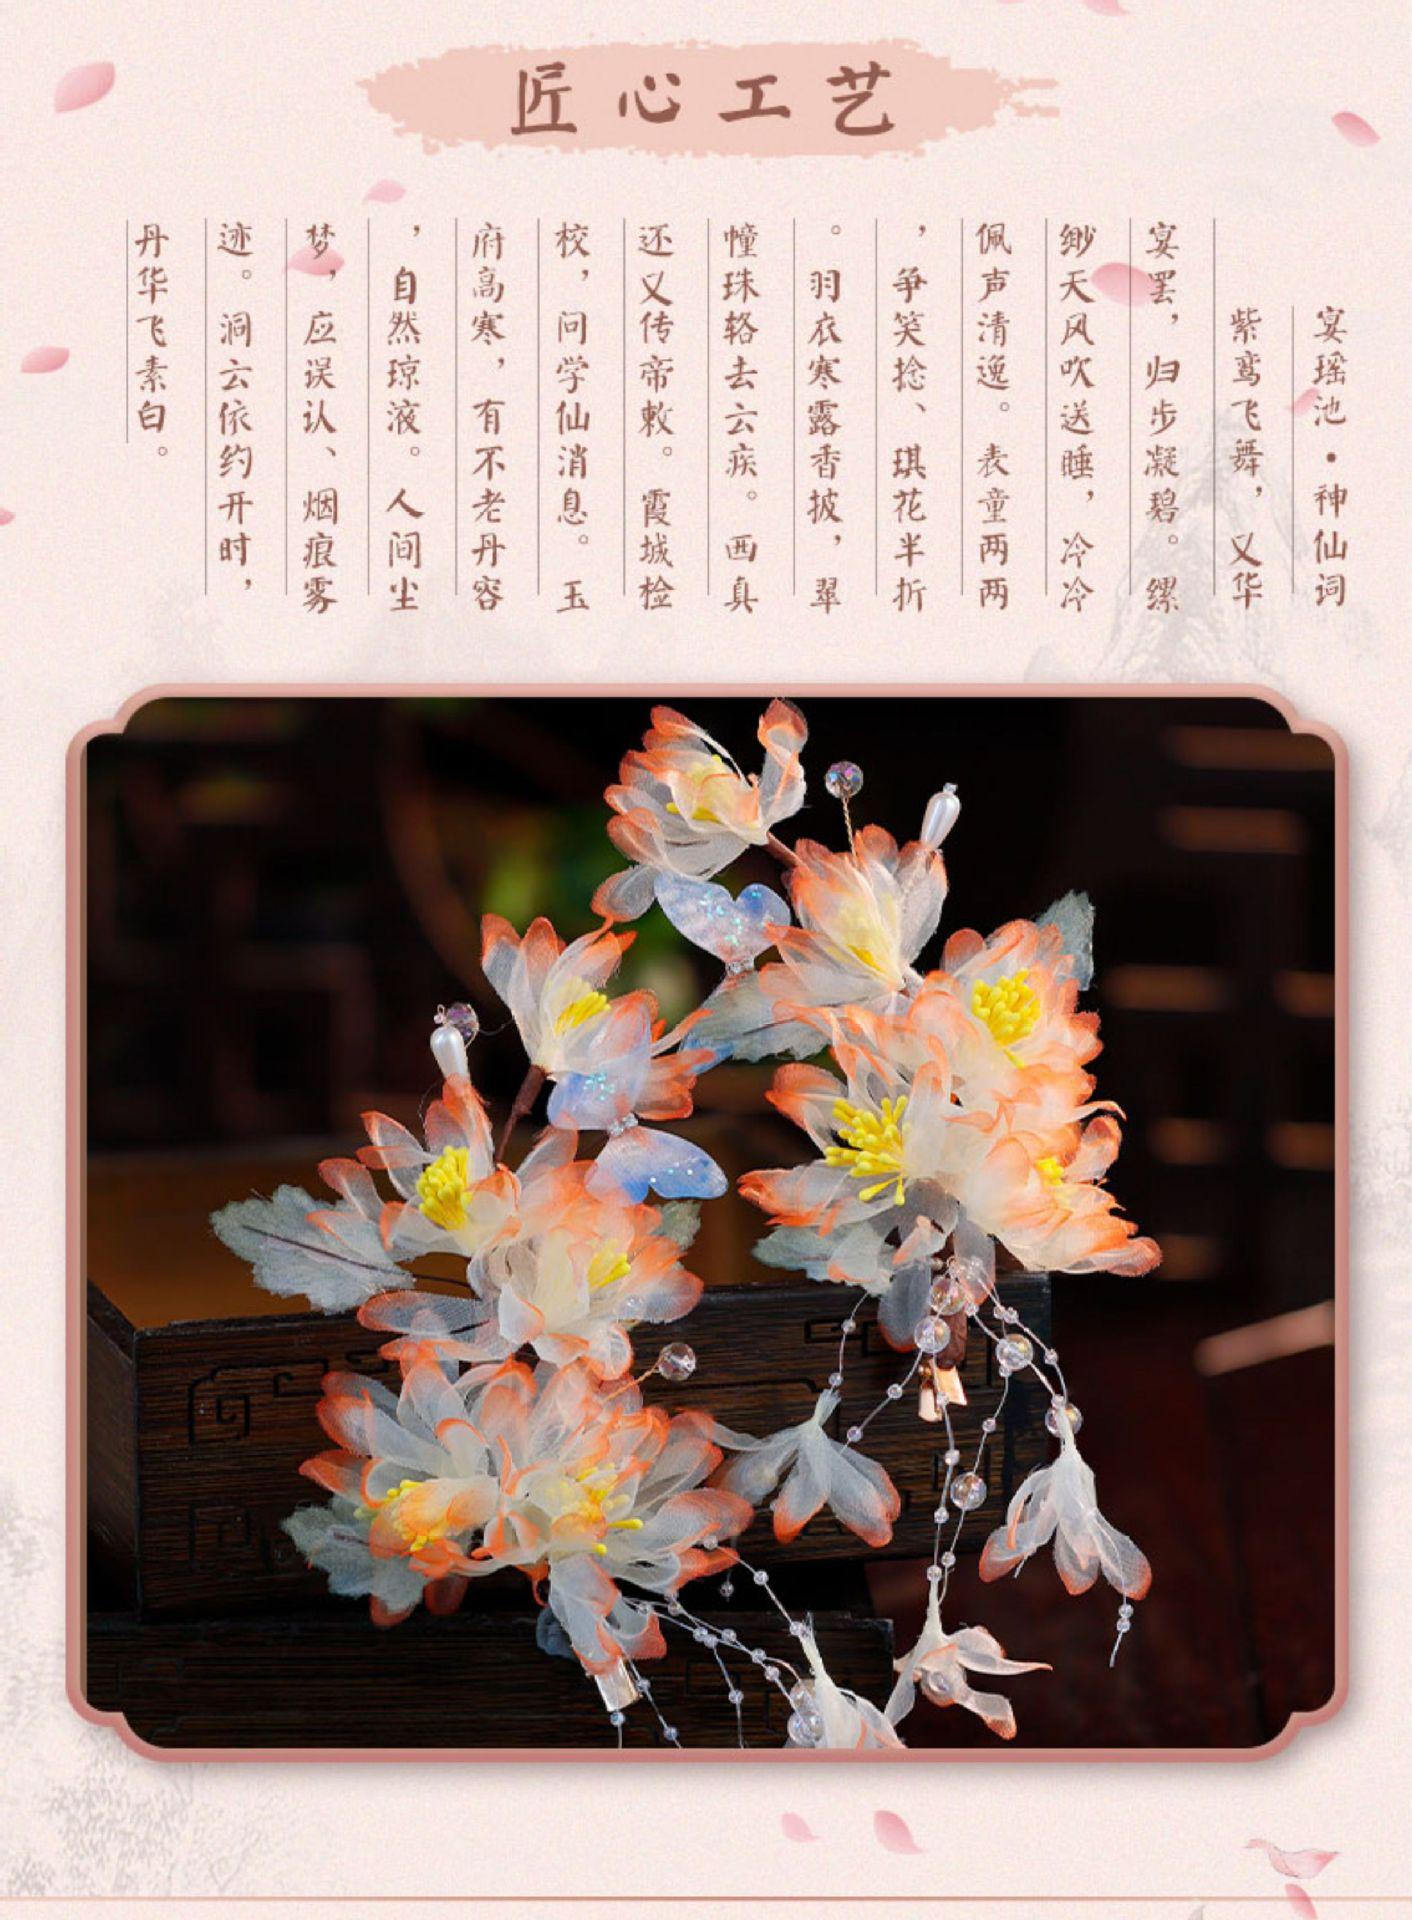 匠心工艺
宴瑶池·神仙词
紫鸾飞舞，又华
宴罢，归步凝碧。缥
缈天风吹送睡，冷冷
佩声清逸。表童两两
，争笑捻、琪花半折
。羽衣寒露香披，翠
幢珠辂去云疾。西真
还又传帝敕。霞城检
校，问学仙消息。玉
府高寒，有不老丹容
，自然琼液。人间尘
梦，应误认、烟痕雾
迹。洞云依约开时，
丹华飞素白。